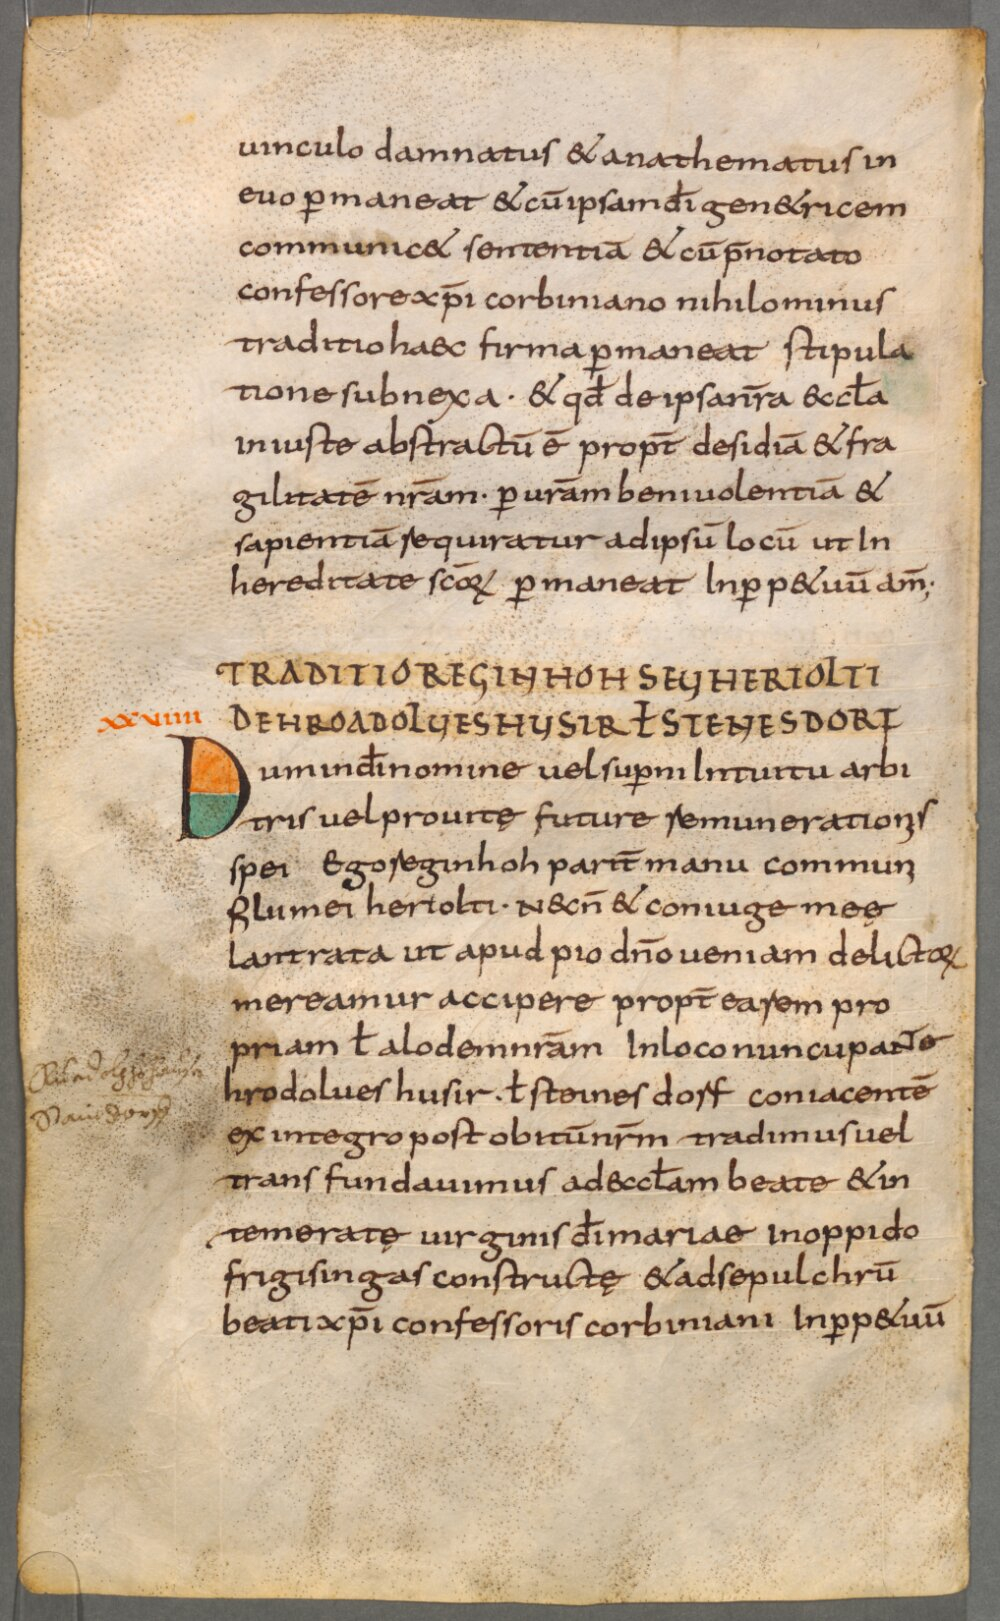 uinculo damnatus & anathematus in
euo p̄maneat & cū ipsam dī gen&ricem
communic& sententiā & cū p̄notato
confessore xp̄i corbiniano nihilominus
traditio haec firma p̄maneat stipula
tione subnexa · & qđ de ipsa nr̄a &ccła
iniuste abstractū ē propt̄ desidiā & fra
gilitatē nr̄am · p̄ ur̄am beniuolentiā &
sapientiā requiratur ad ipsū locū ut In
hereditate sc̄oꝝ p̄maneat In p̄p&uū am̄;
TRADITIO REGINHOH SEU HERIOLTI
XXVIIII DE HROADOLUESHUSIR ł STENESDORF
Dum in dī nomine uel sup̄ni Intuitu arbi
tris uel pro uitę future remunerationis
spei Ego reginhoh parit̄ manu communi
filii mei heriolti · N&cn̄ & coniuge meę
lantrata ut apud pio dn̄o ueniam delictoꝝ
mereamur accipere propt̄ ea rem pro
priam ł alodem nr̄am In loco nuncupante
hrodolues husir · ł steines dorf coniacentē
ex integro post obitū nr̄m tradimus uel
transfundauimus ad &ccłam beate & in
temeratę uirginis dī mariae in oppido
frigisingas constructę & ad sepulchrū
beati xp̄i confessoris corbiniani In p̄p&uū